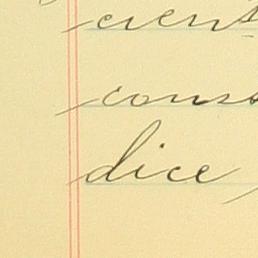 cient
cons
dice